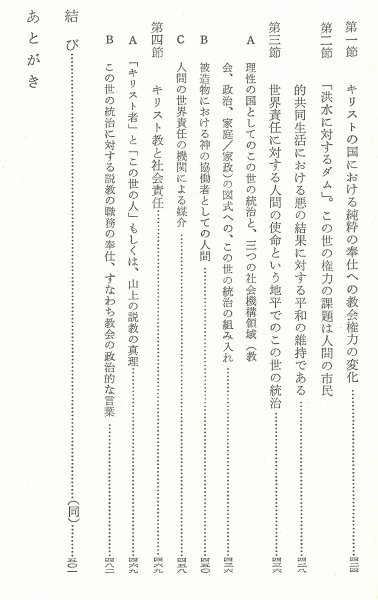 第一節　キリストの国における純粋の奉仕への教会権力の変化……四二四
第二節　「洪水に対するダム」。この世の権力の課題は人間の市民
的共同生活における悪の結果に対する平和の維持である……四二八
第三節　世界責任に対する人間の使命という地平でのこの世の統治……四三六
A　理性の国としてのこの世の統治と、三つの社会機構領域（教
会、政治、家庭／家政）の図式への、この世の統治の組み入れ……四三六
B　被造物における神の協働者としての人間……四五〇
C　人間の世界責任の機関による媒介……四五八
第四節　キリスト教と社会責任……四六九
A　「キリスト者」と「この世の人」もしくは、山上の説教の真理……四六九
B　この世の統治に対する説教の職務の奉仕、すなわち教会の政治的な言葉……四八二
結び……（同）……五〇一
あとがき